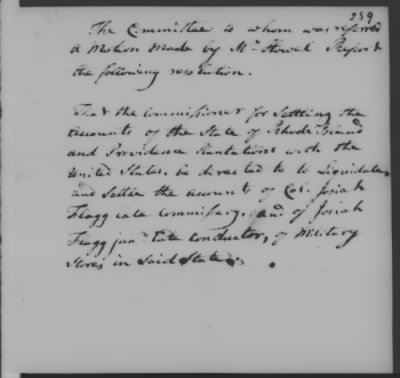 259
The Committee to whom was referred
a Motion made by Mr Howel Report
the following resolution.
That the Commissioner for Settling the
accounts of the State of Rhode Island
and Providence Plantations with the
United States. be directed to to Liquidate
and Settle the accounts of Col. Josiah
Flagg late Commissary, and of Josiah
Flagg junr late Conductor, of Military
Stores in Said State.